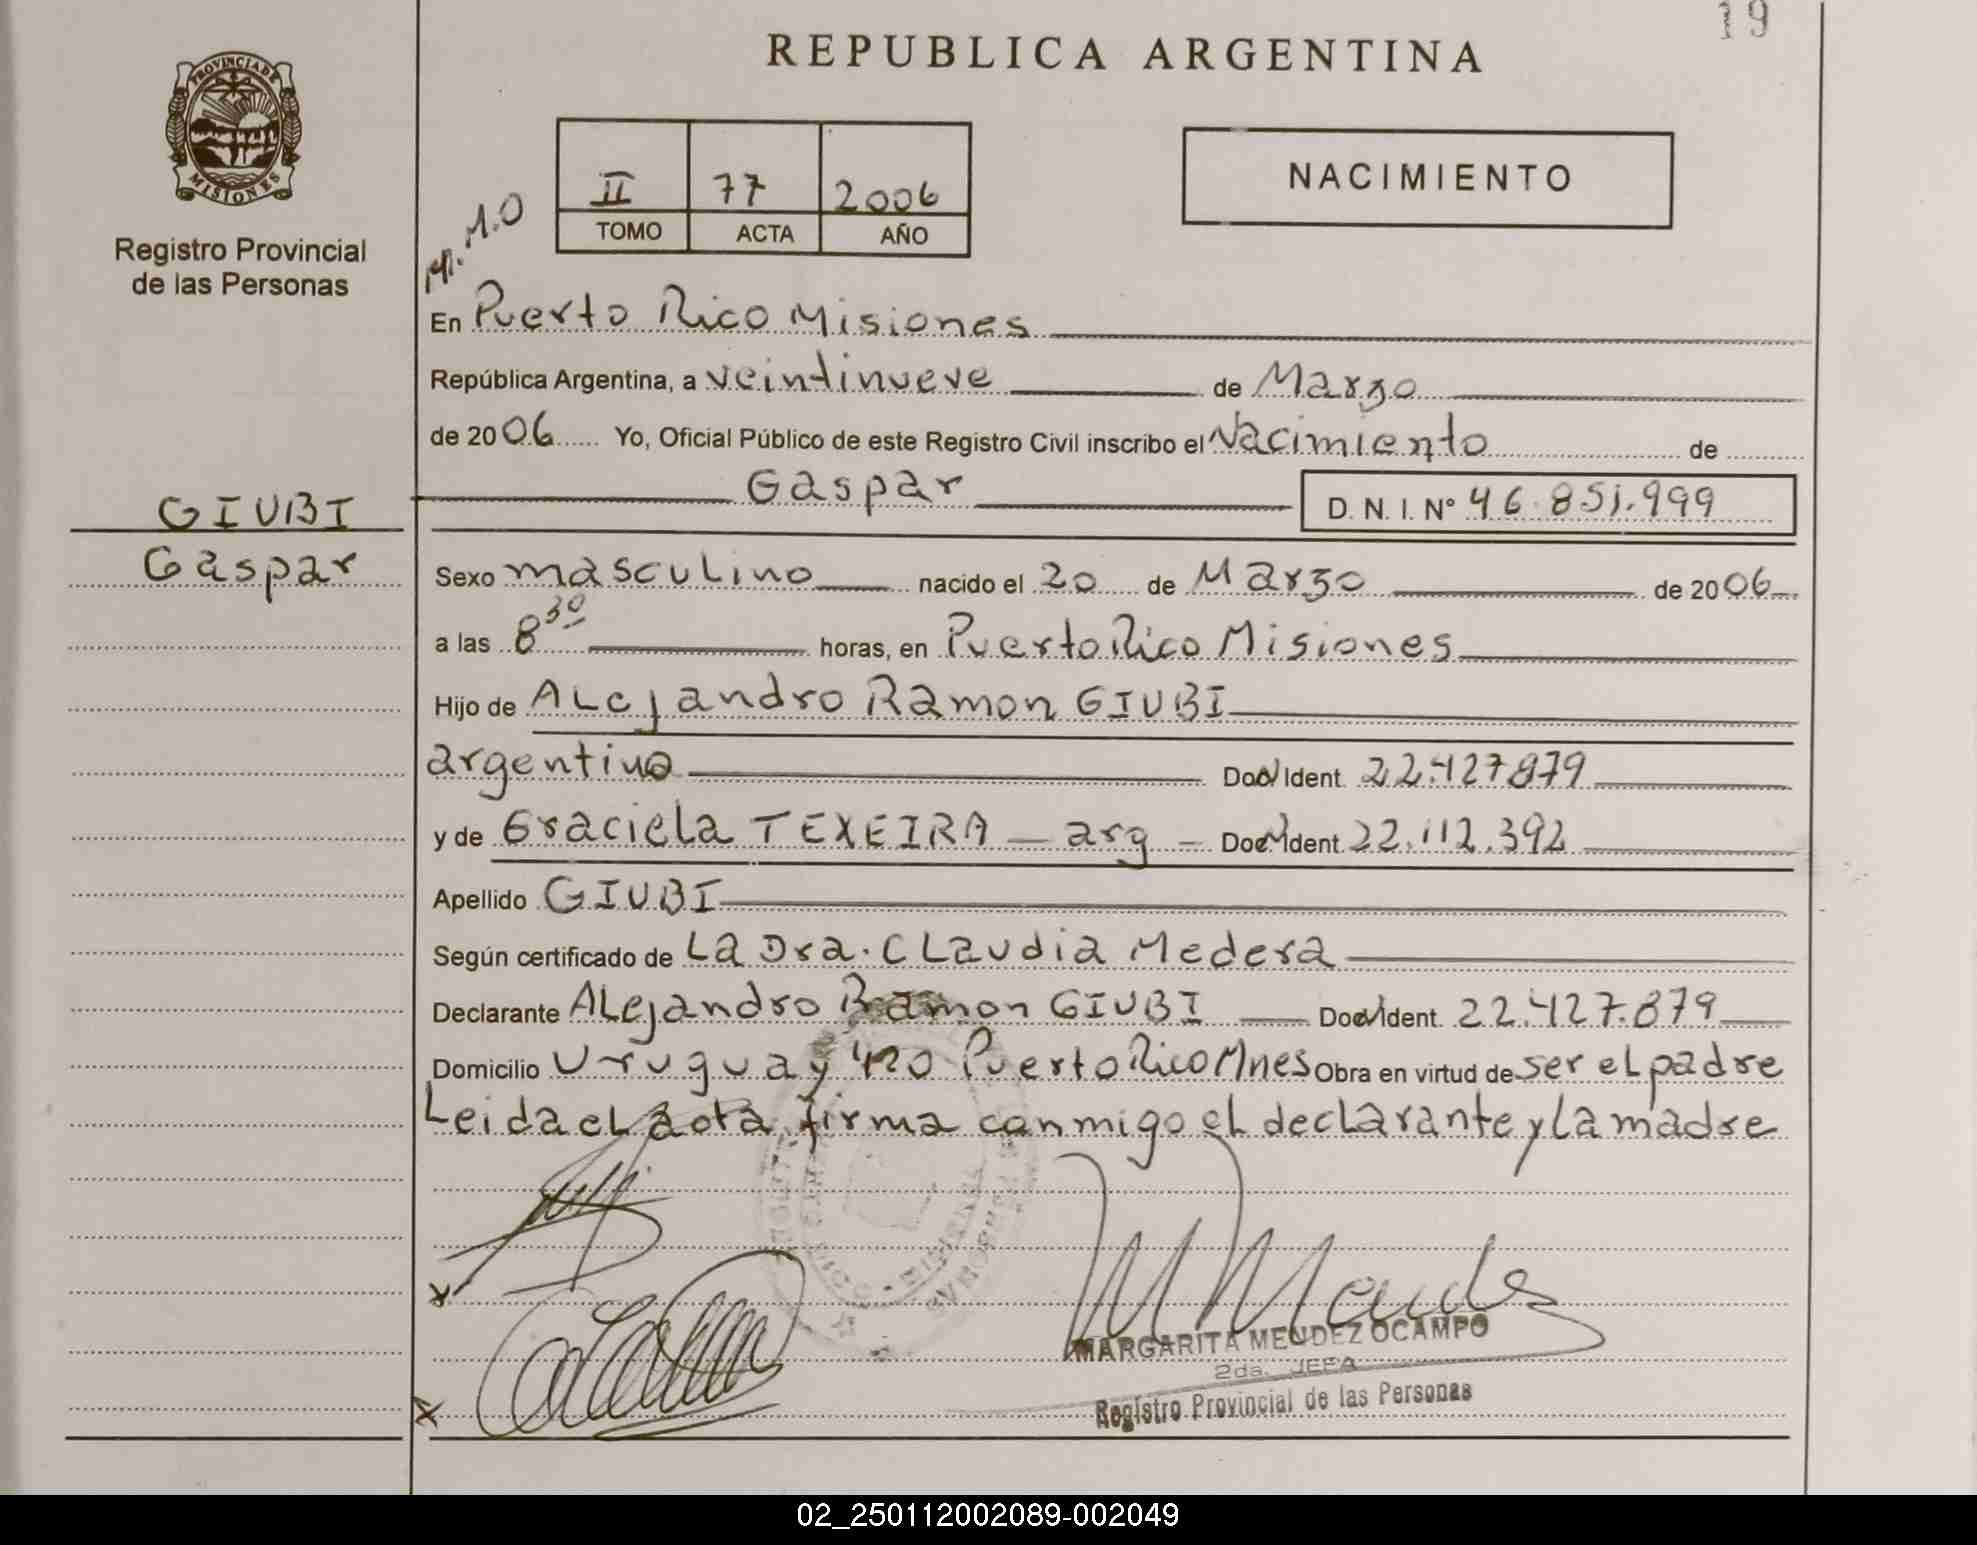 19
REPUBLICA ARGENTINA
PROVINCIA DE
MISIONES
Registro Provincial
de las Personas
II 77 2006
TOMO ACTA AÑO
NACIMIENTO
M.O
En Puerto Rico Misiones
República Argentina, a veintinueve de Marzo
de 2006 Yo, Oficial Público de este Registro Civil inscribo el Nacimiento de
Gaspar D. N. I. Nº 46.851.999
GIUBI
Gaspar
Sexo masculino nacido el 20 de Marzo de 2006
a las 8 30 horas, en Puerto Rico Misiones
Hijo de ALejandro Ramon GIUBI
argentino Doc Ident. 22.427879
y de Graciela TEXEIRA - arg - Doc Ident. 22.112.392
Apellido GIUBI
Según certificado de La Dra. CLaudia Medera
Declarante ALejandro Ramon GIUBI Doc Ident. 22.427.879
Domicilio Uruguay 420 Puerto Rico Mnes Obra en virtud de ser eL padre
Leida eL acta, firma conmigo eL decLarante y La madre
MARGARITA MENDEZ OCAMPO
2da. JEFA
Registro Provincial de las Personas
02_250112002089-002049